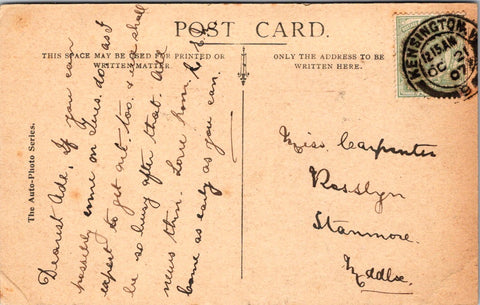 POST CARD.
THIS SPACE MAY BE USED FOR PRINTED OR
WRITTEN MATTER.
ONLY THE ADDRESS TO BE
WRITTEN HERE.
KENSINGTON. W
12.15 AM
OC 21
07
The Auto-Photo Series.
Dearest Ada, If you can
possibly come on Tues. do, as I
expect to get out too. & we shall
be so busy after that. All
news then. Love from
Come as early as you can.
Miss Carpenter
Rosslyn
Stanmore.
Middlse.